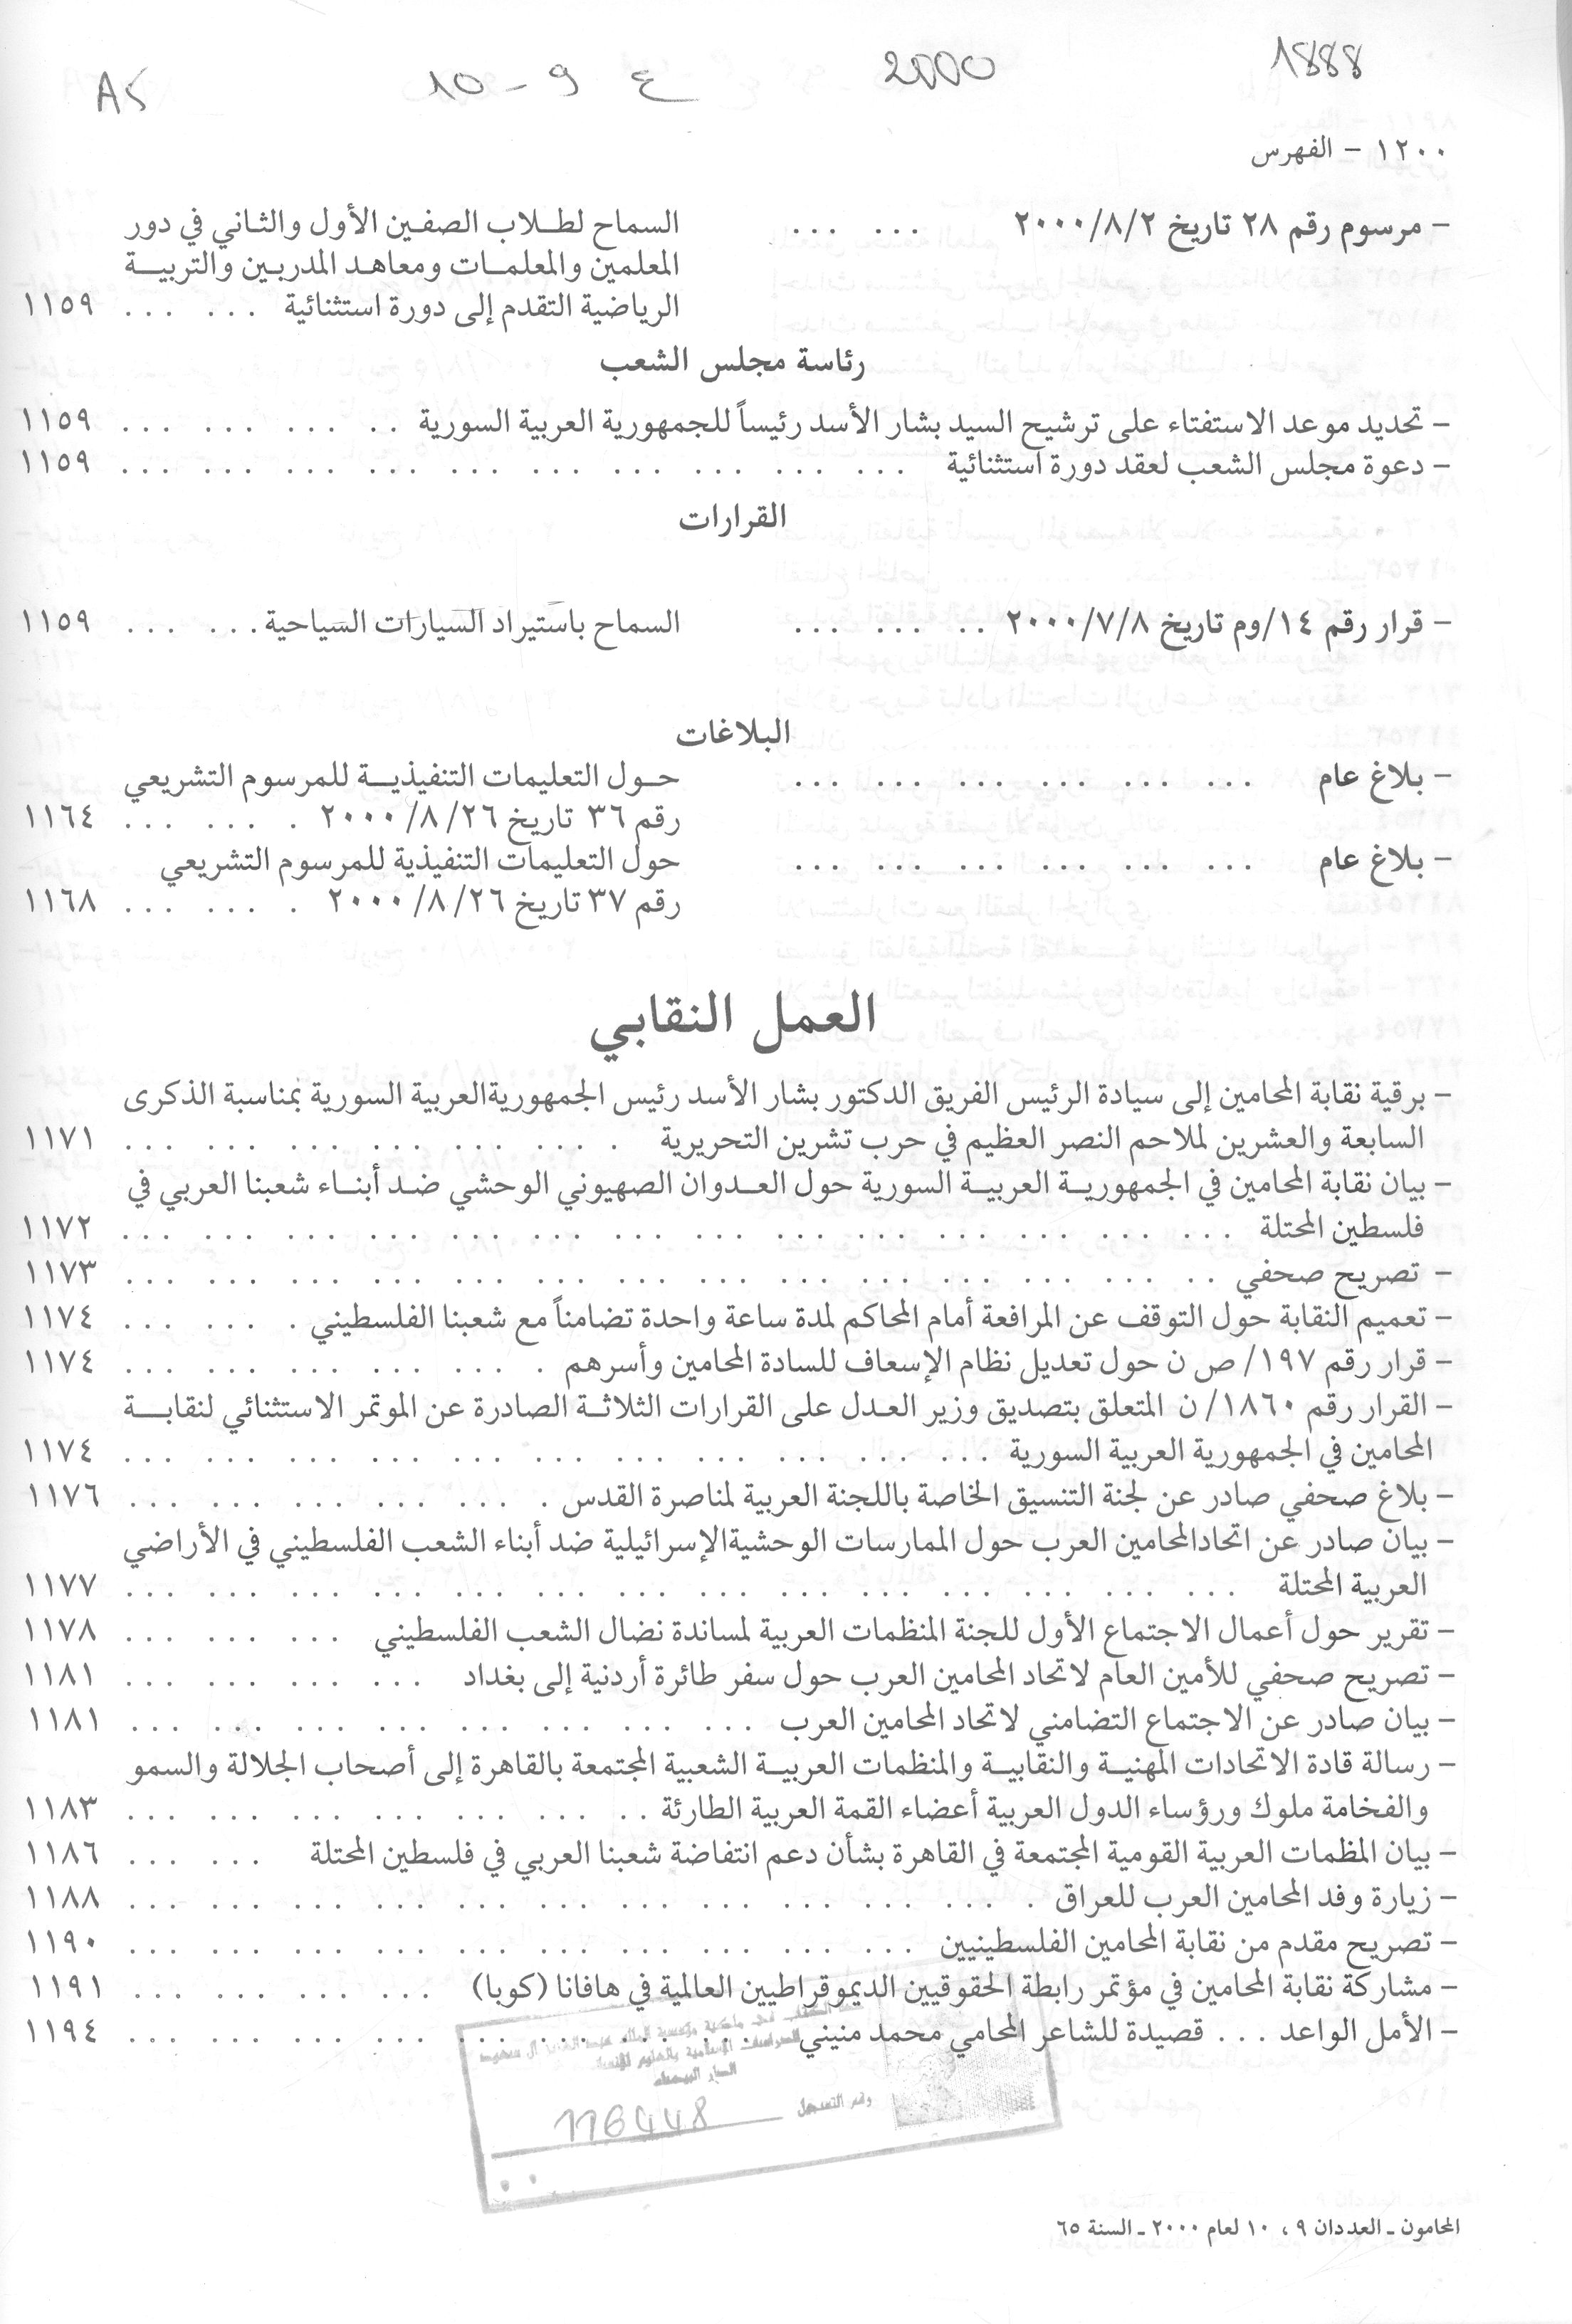 1888 2000 ع 9 - 10 A5
١٢٠٠ - الفهرس
- مرسوم رقم ٢٨ تاريخ ٢٠٠٠/٨/٢ ... ... السماح لطلاب الصفين الأول والثاني في دور
المعلمين والمعلمات ومعاهد المدربين والتربية
الرياضية التقدم إلى دورة استثنائية ... ... ١١٥٩
رئاسة مجلس الشعب
- تحديد موعد الاستفتاء على ترشيح السيد بشار الأسد رئيساً للجمهورية العربية السورية .. ... ... ... ١١٥٩
- دعوة مجلس الشعب لعقد دورة استثنائية ... ... ... ... ... ... ... ... ... ... ١١٥٩
القرارات
- قرار رقم ١٤/وم تاريخ ٢٠٠٠/٧/٨ .. ... ... السماح باستيراد السيارات السياحية ... ... ١١٥٩
البلاغات
- بلاغ عام ... ... ... ... ... ... حول التعليمات التنفيذية للمرسوم التشريعي
رقم ٣٦ تاريخ ٢٠٠٠/٨/٢٦ . ... ... ١١٦٤
- بلاغ عام ... ... ... ... ... ... حول التعليمات التنفيذية للمرسوم التشريعي
رقم ٣٧ تاريخ ٢٠٠٠/٨/٢٦ . ... ... ١١٦٨
العمل النقابي
- برقية نقابة المحامين إلى سيادة الرئيس الفريق الدكتور بشار الأسد رئيس الجمهورية العربية السورية بمناسبة الذكرى
السابعة والعشرين لملاحم النصر العظيم في حرب تشرين التحريرية . ... ... ... ... ... ... ١١٧١
- بيان نقابة المحامين في الجمهورية العربية السورية حول العدوان الصهيوني الوحشي ضد أبناء شعبنا العربي في
فلسطين المحتلة ... ... ... ... ... ... ... ... ... ... ... ... ... ... ١١٧٢
- تصريح صحفي .. ... ... ... ... ... ... ... ... ... ... ... ... ... ١١٧٣
- تعميم النقابة حول التوقف عن المرافعة أمام المحاكم لمدة ساعة واحدة تضامناً مع شعبنا الفلسطيني . ... ... ١١٧٤
- قرار رقم ١٩٧/ ص ن حول تعديل نظام الإسعاف للسادة المحامين وأسرهم . ... ... ... ... ... ١١٧٤
- القرار رقم ١٨٦٠/ ن المتعلق بتصديق وزير العدل على القرارات الثلاثة الصادرة عن الموتمر الاستثنائي لنقابة
المحامين في الجمهورية العربية السورية ... ... ... ... ... ... ... ... ... ... ... ١١٧٤
- بلاغ صحفي صادر عن لجنة التنسيق الخاصة باللجنة العربية لمناصرة القدس . ... ... ... ... ... ١١٧٦
- بيان صادر عن اتحاد المحامين العرب حول الممارسات الوحشية الإسرائيلية ضد أبناء الشعب الفلسطيني في الأراضي
العربية المحتلة ... ... ... ... ... ... ... ... ... ... ... ... ... ... ١١٧٧
- تقرير حول أعمال الاجتماع الأول للجنة المنظمات العربية لمساندة نضال الشعب الفلسطيني ... ... ... ١١٧٨
- تصريح صحفي للأمين العام لاتحاد المحامين العرب حول سفر طائرة أردنية إلى بغداد ... ... ... ... ١١٨١
- بيان صادر عن الاجتماع التضامني لاتحاد المحامين العرب ... ... ... ... ... ... ... ... ١١٨١
- رسالة قادة الاتحادات المهنية والنقابية والمنظمات العربية الشعبية المجتمعة بالقاهرة إلى أصحاب الجلالة والسمو
والفخامة ملوك ورؤساء الدول العربية أعضاء القمة العربية الطارئة .. ... ... ... ... ... ... ١١٨٣
- بيان المظمات العربية القومية المجتمعة في القاهرة بشأن دعم انتفاضة شعبنا العربي في فلسطين المحتلة ... ... ١١٨٦
- زيارة وفد المحامين العرب للعراق . ... ... ... ... ... ... ... ... ... ... ... ١١٨٨
- تصريح مقدم من نقابة المحامين الفلسطينيين ... ... ... ... ... ... ... ... ... ... ١١٩٠
- مشاركة نقابة المحامين في مؤتمر رابطة الحقوقيين الديموقراطيين العالمية في هافانا (كوبا) ... ... ... ... ١١٩١
- الأمل الواعد ... قصيدة للشاعر المحامي محمد منيني ... ... ... ... ... ... ... ... ١١٩٤
الدار البيضاء
رقم التسجيل 116448
المحامون ـ العددان ٩ ، ١٠ لعام ٢٠٠٠ ـ السنة ٦٥